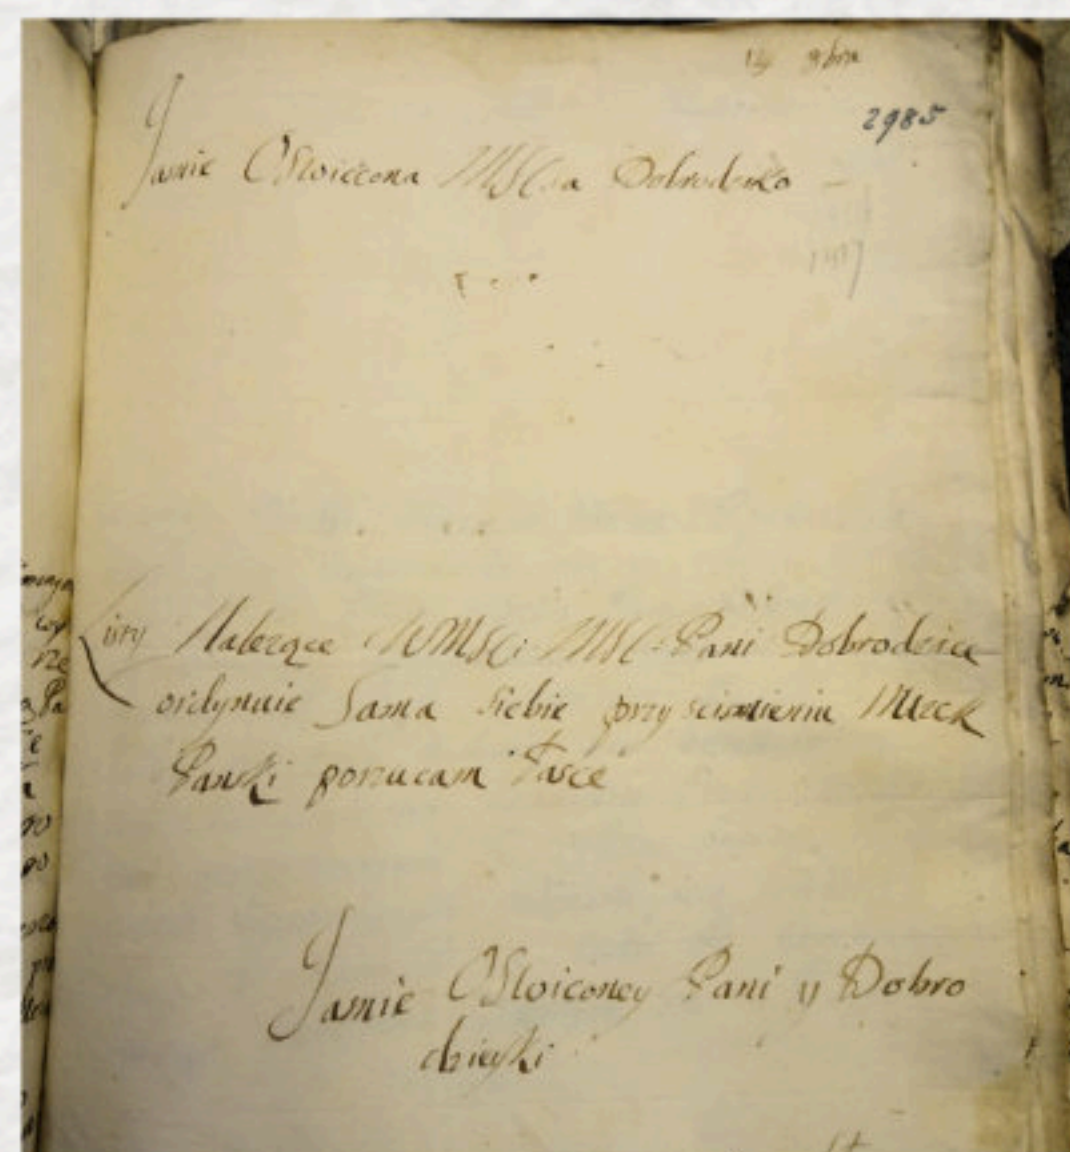 2985
Jasnie Oswiecona MSCia Dobrodzko
Listy Należące WMSCi MSC Pani Dobrodzice
ordynuie Sama siebie przy scisnieniu Nuzek
Panski porzucam Łasce
Jasnie Oswiconey Pani y Dobro
dzieyki